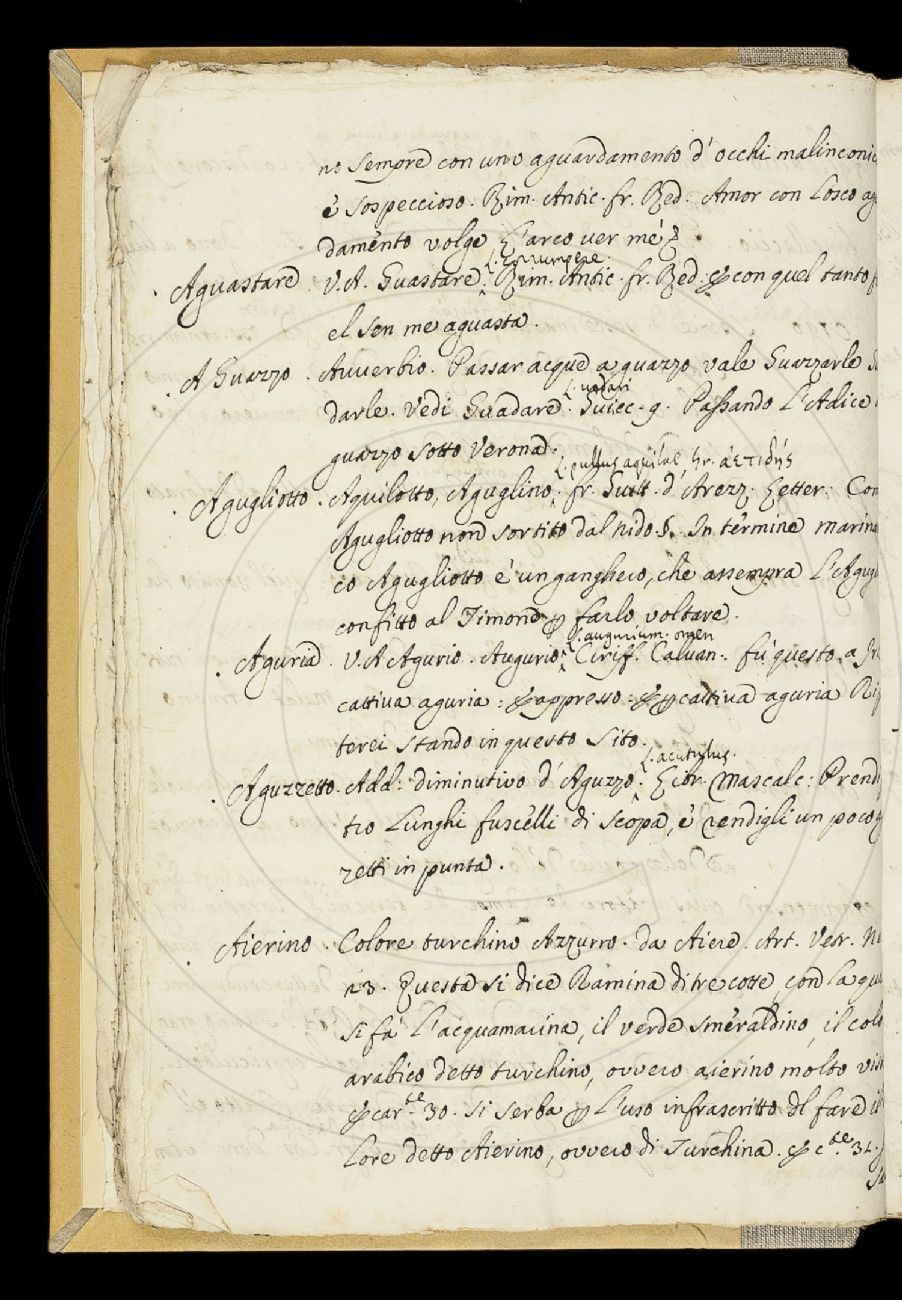 no sempre con uno aguardamento d' occhi malinconic
è sospeccioso. Rim. Antic. fr. Red. Amor con losco ag
damento volge l'arco ver mé
l. corrumpere.
Aguastare. V. A. Guastare. Rim. Antic. fr. Red: & con quel tanto
el sen me aguasta.
A Guazzo. Avverbio. Passar acque a guazzo vale Guazzarle
l. vadari
darle. Vedi Guadare. Guicc. g. Passando l'Adice
guazzo sotto Verona.
l. pullus aquilae gr. ἀετιδῆς
Agugliotto. Aquilotto, Aguglino. fr. Guitt. d' Arezz. Letter: Com
Agugliotto non sortito dal nido. §. In termine marina
co Agugliotto è un ganghero, che assempra l'Agugl
confitto al Timone p farlo voltare.
l. augurium. omen
Aguria. V. A Agurio. Augurio. Ciriff. Calvan.: fù questo a
cattiva aguria: & appresso: & p cattiva aguria Rip
terei stando in questo sito.
l. acutulus.
Aguzzetto. Add: diminutivo d' Aguzzo. Libr. Mascalc: Prend
tro lunghi fuscelli di scopa, è rendigli un poco
zetti in punta.
Aierino. Colore turchino Azzurro. da Aiere. Art. Vetr. N
23. Questa si dice Ramina di tre cotte, con la qu
si fà l'acquamarina, il verde smeraldino, il colo
arabico detto turchino, ovvero aierino molto vis
& car.te 30. si serba p l'uso infrascritto dl fare il
lore detto Aierino, ovvero di Turchina. & c.te 31.